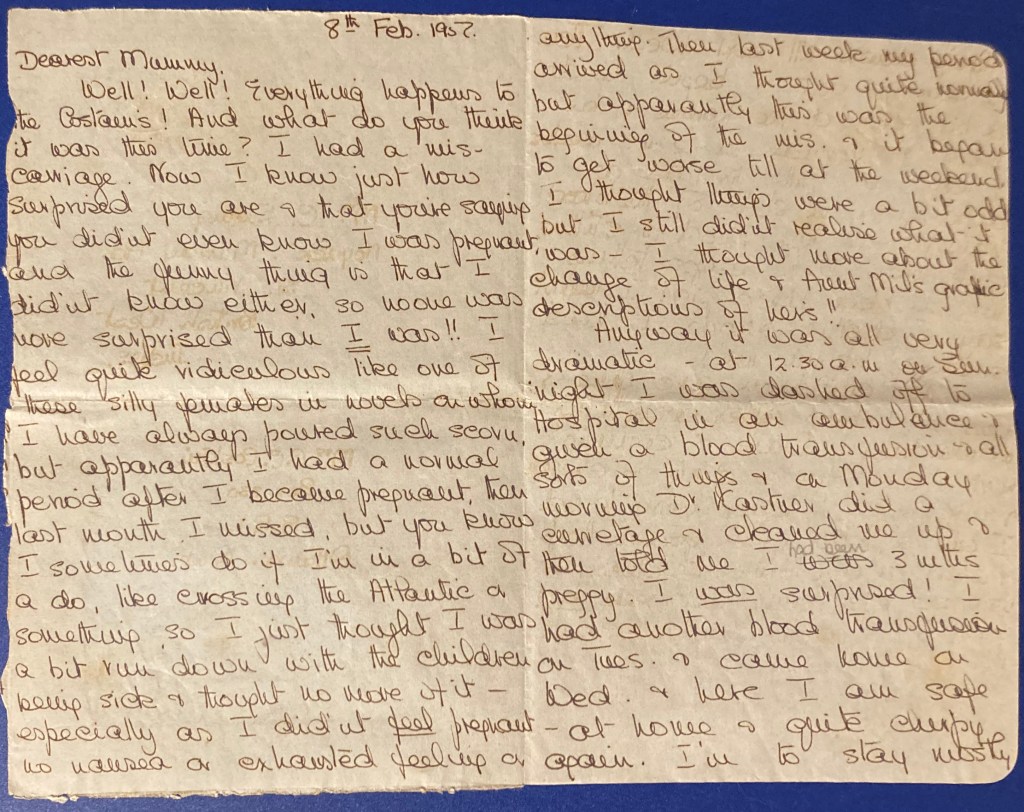 8th Feb. 1957.
Dearest Mummy,
Well! Well! Everything happens to
the Costain's! And what do you think
it was this time? I had a mis-
carriage. Now I know just how
surprised you are & that you're saying
you did'nt even know I was pregnant
and the funny thing is that I
did'nt know either, so noone was
more surprised than I was!! I
feel quite ridiculous like one of
these silly females in novels on whom
I have always poured such scorn,
but apparantly I had a normal
period after I became pregnant, then
last month I missed, but you know
I sometimes do if I'm in a bit of
a do, like crossing the Atlantic or
something so I just thought I was
a bit run down with the children
being sick & thought no more of it -
especially as I did'nt feel pregnant -
no nausea or exhausted feeling or
anything. Then last week my period
arrived as I thought quite normally
but apparantly this was the
beginning of the mis. & it began
to get worse till at the weekend
I thought things were a bit odd
but I still did'nt realise what it
was - I thought more about the
change of life & Aunt Mil's grafic
descriptions of hers!!
Anyway it was all very
dramatic - at 12.30 a.m on Sun.
night I was dashed off to
Hospital in an ambulance &
given a blood transfusion & all
sorts of things & on Monday
morning Dr. Kastner did a
curretage & cleaned me up &
then told me I had been 3 mths
preggy. I was surprised! I
had another blood transfusion
on Tues. & came home on
Wed. & here I am safe
at home & quite chirpy
again. I'm to stay mostly